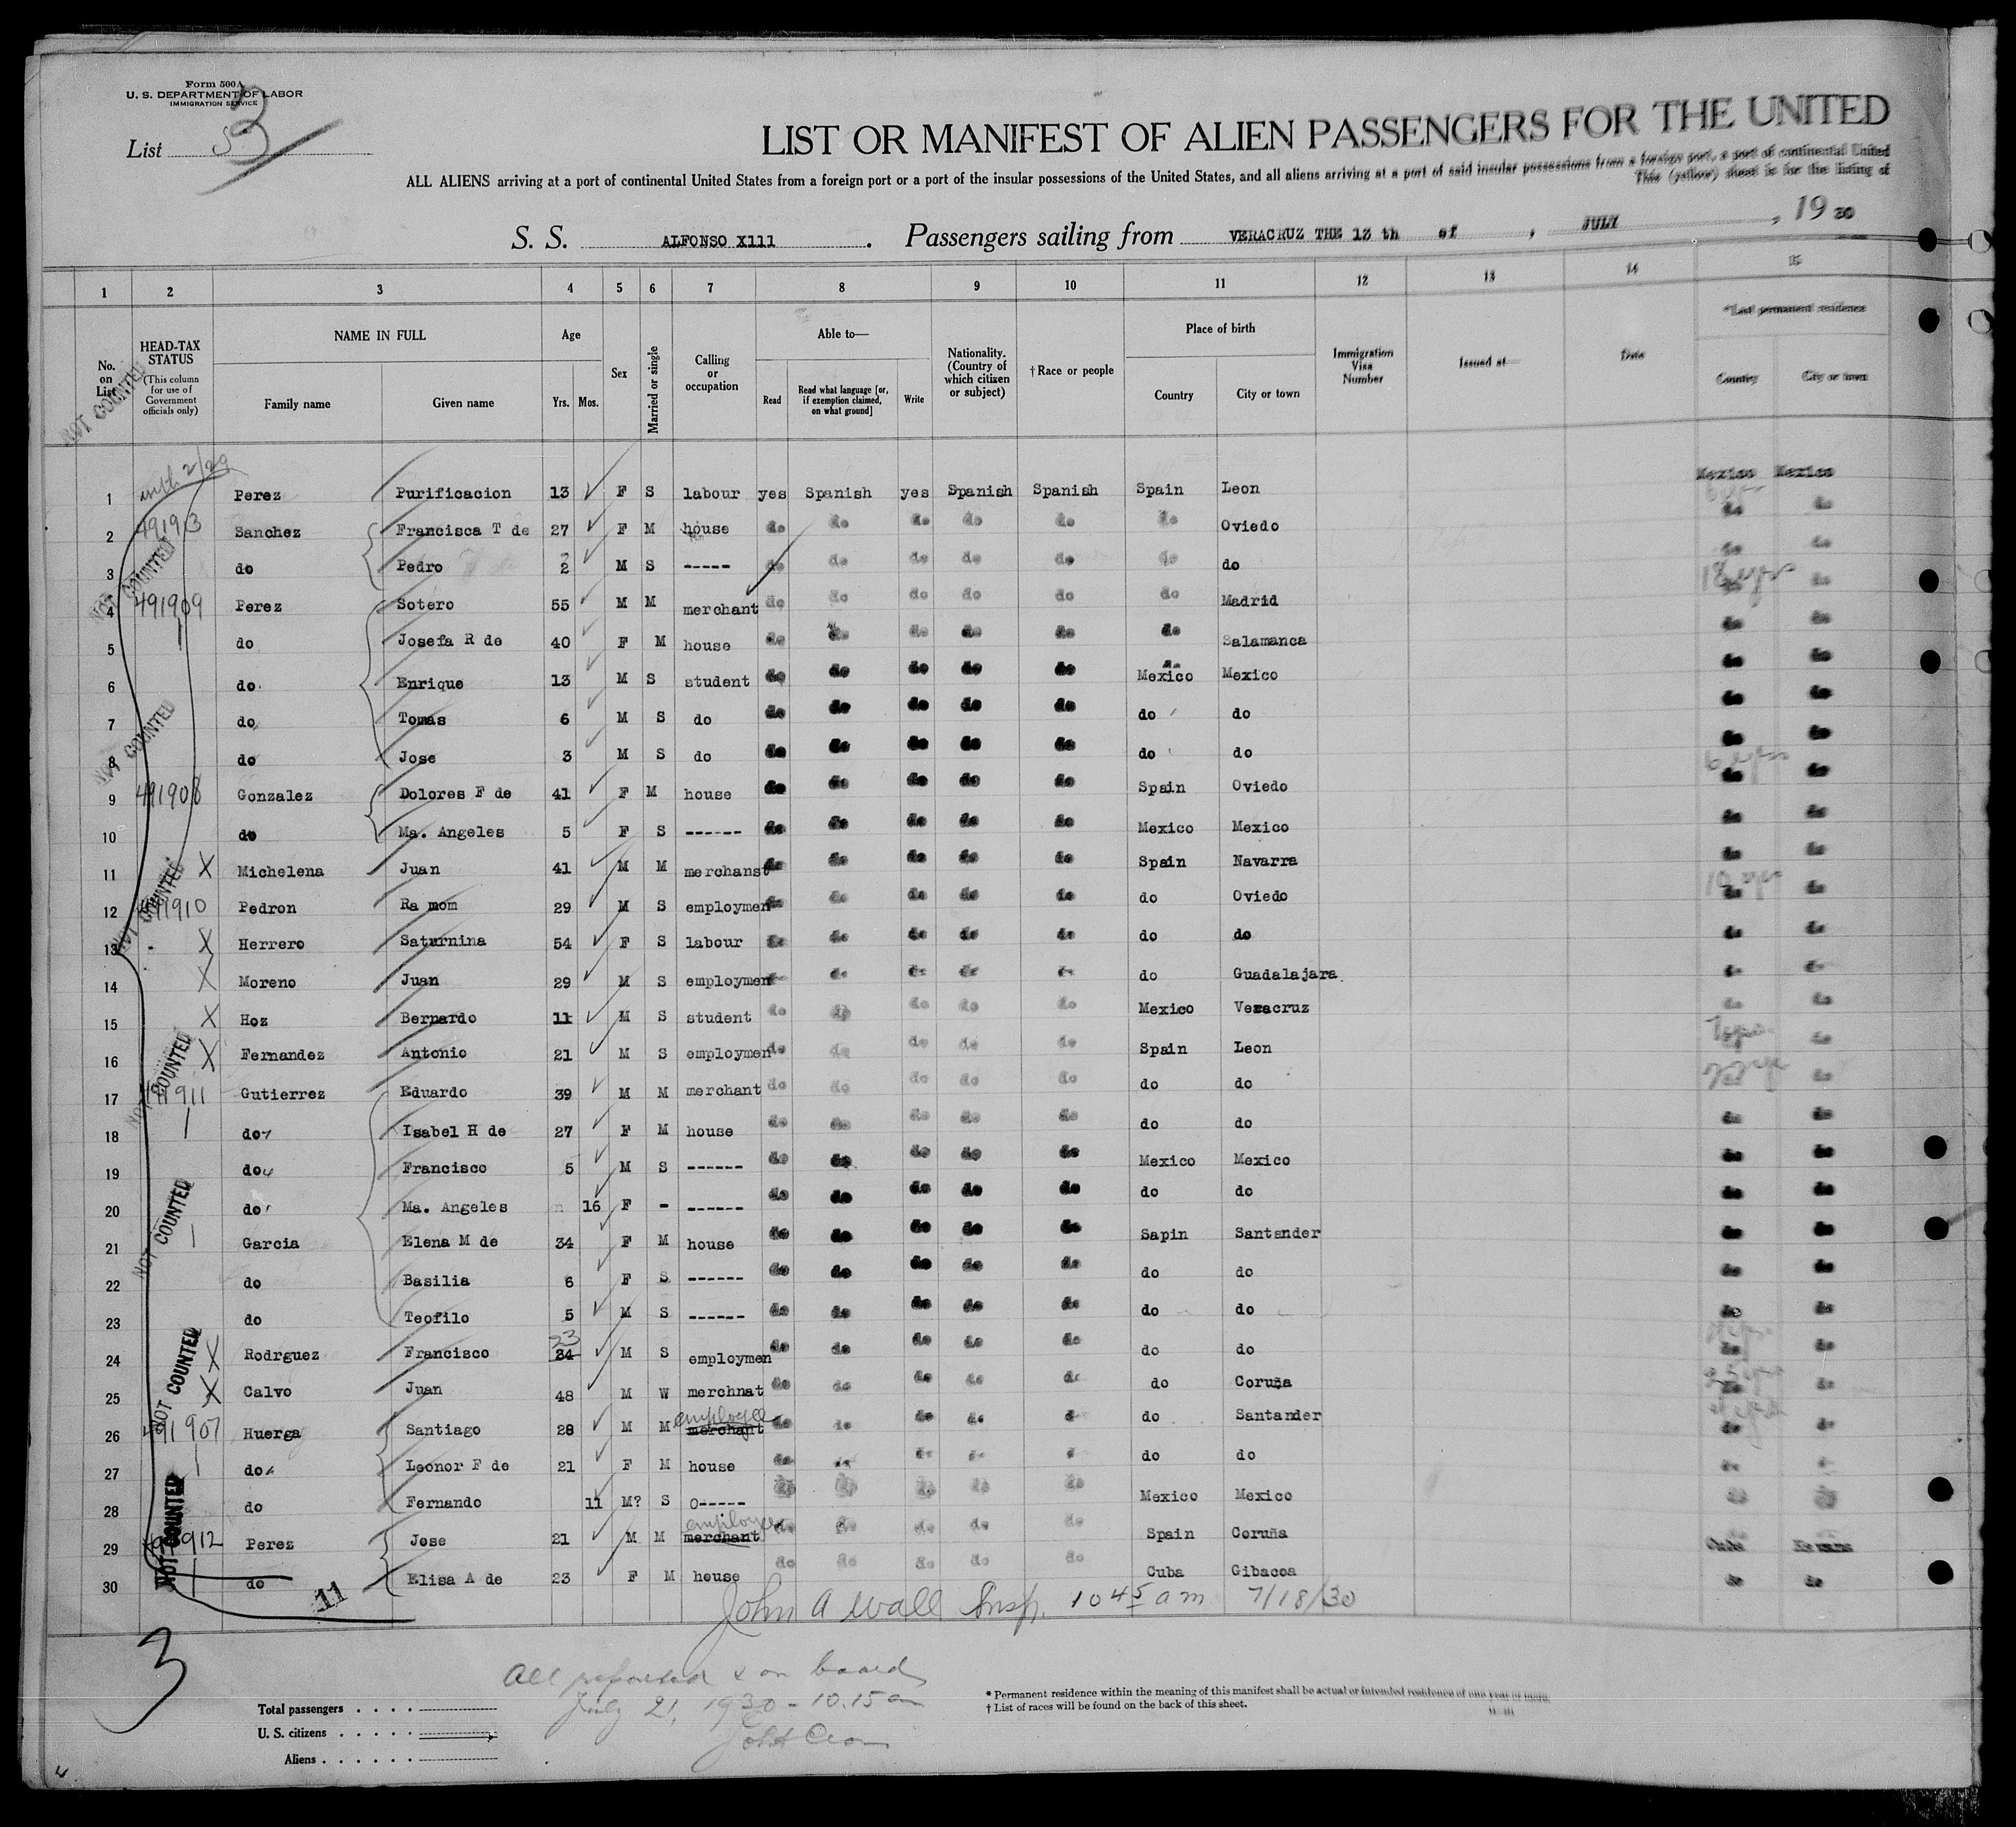 Form 500A
U. S. DEPARTMENT OF LABOR
IMMIGRATION SERVICE
List 3
LIST OR MANIFEST OF ALIEN PASSENGERS FOR THE UNITED
ALL ALIENS arriving at a port of continental United States from a foreign port or a port of the insular possessions of the United States, and all aliens arriving at a port of said insular possessions from a foreign port, a port of continental United
This (yellow) sheet is for the listing of
S. S. ALFONSO X111 . Passengers sailing from VERACRUZ THE 13 th of , JULY , 19 30
1 2 3 4 5 6 7 8 9 10 11 12 13 14 15
No. on List
HEAD-TAX STATUS (This column for use of Government officials only)
NAME IN FULL Family name Given name
Age Yrs. Mos.
Sex
Married or single
Calling or occupation
Able to— Read Read what language [or, if exemption claimed, on what ground] Write
Nationality. (Country of which citizen or subject)
† Race or people
Place of birth Country City or town
Immigration Visa Number
Issued at—
Date
*Last permanent residence Country City or town
NOT COUNTED
1 Perez Purificacion 13 F S labour yes Spanish yes Spanish Spanish Spain Leon Mexico Mexico
2 491913 Sanchez Francisca T de 27 F M house do do do do do do Oviedo do do
3 do Pedro 2 M S ----- do do do do do do do do do
NOT COUNTED
4 491909 Perez Sotero 55 M M merchant do do do do do do Madrid 18 yrs do
5 do Josefa R de 40 F M house do do do do do do Salamanca do do
6 do Enrique 13 M S student do do do do do Mexico Mexico do do
7 do Tomas 6 M S do do do do do do do do do do
8 do Jose 3 M S do do do do do do do do do do
NOT COUNTED
9 491908 Gonzalez Dolores F de 41 F M house do do do do do Spain Oviedo 6 yrs do do
10 do Ma. Angeles 5 F S ------ do do do do do Mexico Mexico do do
11 X Michelena Juan 41 M M merchanst do do do do do Spain Navarra do do
NOT COUNTED
12 491910 Pedron Ra mom 29 M S employmen do do do do do do Oviedo 10 yrs do do
13 X Herrero Saturnina 54 F S labour do do do do do do do do do
14 X Moreno Juan 29 M S employmen do do do do do do Guadalajara do do
15 X Hoz Bernardo 11 M S student do do do do do Mexico Veracruz do do
16 X Fernandez Antonio 21 M S employmen do do do do do Spain Leon do
NOT COUNTED
17 491911 Gutierrez Eduardo 39 M M merchant do do do do do do do do
18 do Isabel H de 27 F M house do do do do do do do do do
19 do Francisco 5 M S ------ do do do do do Mexico Mexico do do
20 do Ma. Angeles 16 F - ------ do do do do do do do do do
NOT COUNTED
21 Garcia Elena M de 34 F M house do do do do do Sapin Santander do do
22 do Basilia 6 F S ------ do do do do do do do do do
23 do Teofilo 5 M S ------ do do do do do do do do do
24 X Rodrguez Francisco 34 23 M S employmen do do do do do do do do do
NOT COUNTED
25 X Calvo Juan 48 M W merchnat do do do do do do Coruña do do
26 491907 Huerga Santiago 28 M M merchant employee do do do do do do Santander do do
27 do Leonor F de 21 F M house do do do do do do do do do
28 do Fernando 11 M? S O----- do do do do do Mexico Mexico do do
NOT COUNTED
29 491912 Perez Jose 21 M M merchant employee do do do do do Spain Coruña Cuba Havana
30 do Elisa A de 23 F M house do do do do do Cuba Gibacoa do do
11
John A Wall Insp. 10 45 am 7/18/30
3
All reported & on board
July 21, 1930 - 10.15 am
Total passengers . . . .
U. S. citizens . . . . .
Aliens . . . . . .
* Permanent residence within the meaning of this manifest shall be actual or intended residence of one year or more.
† List of races will be found on the back of this sheet.